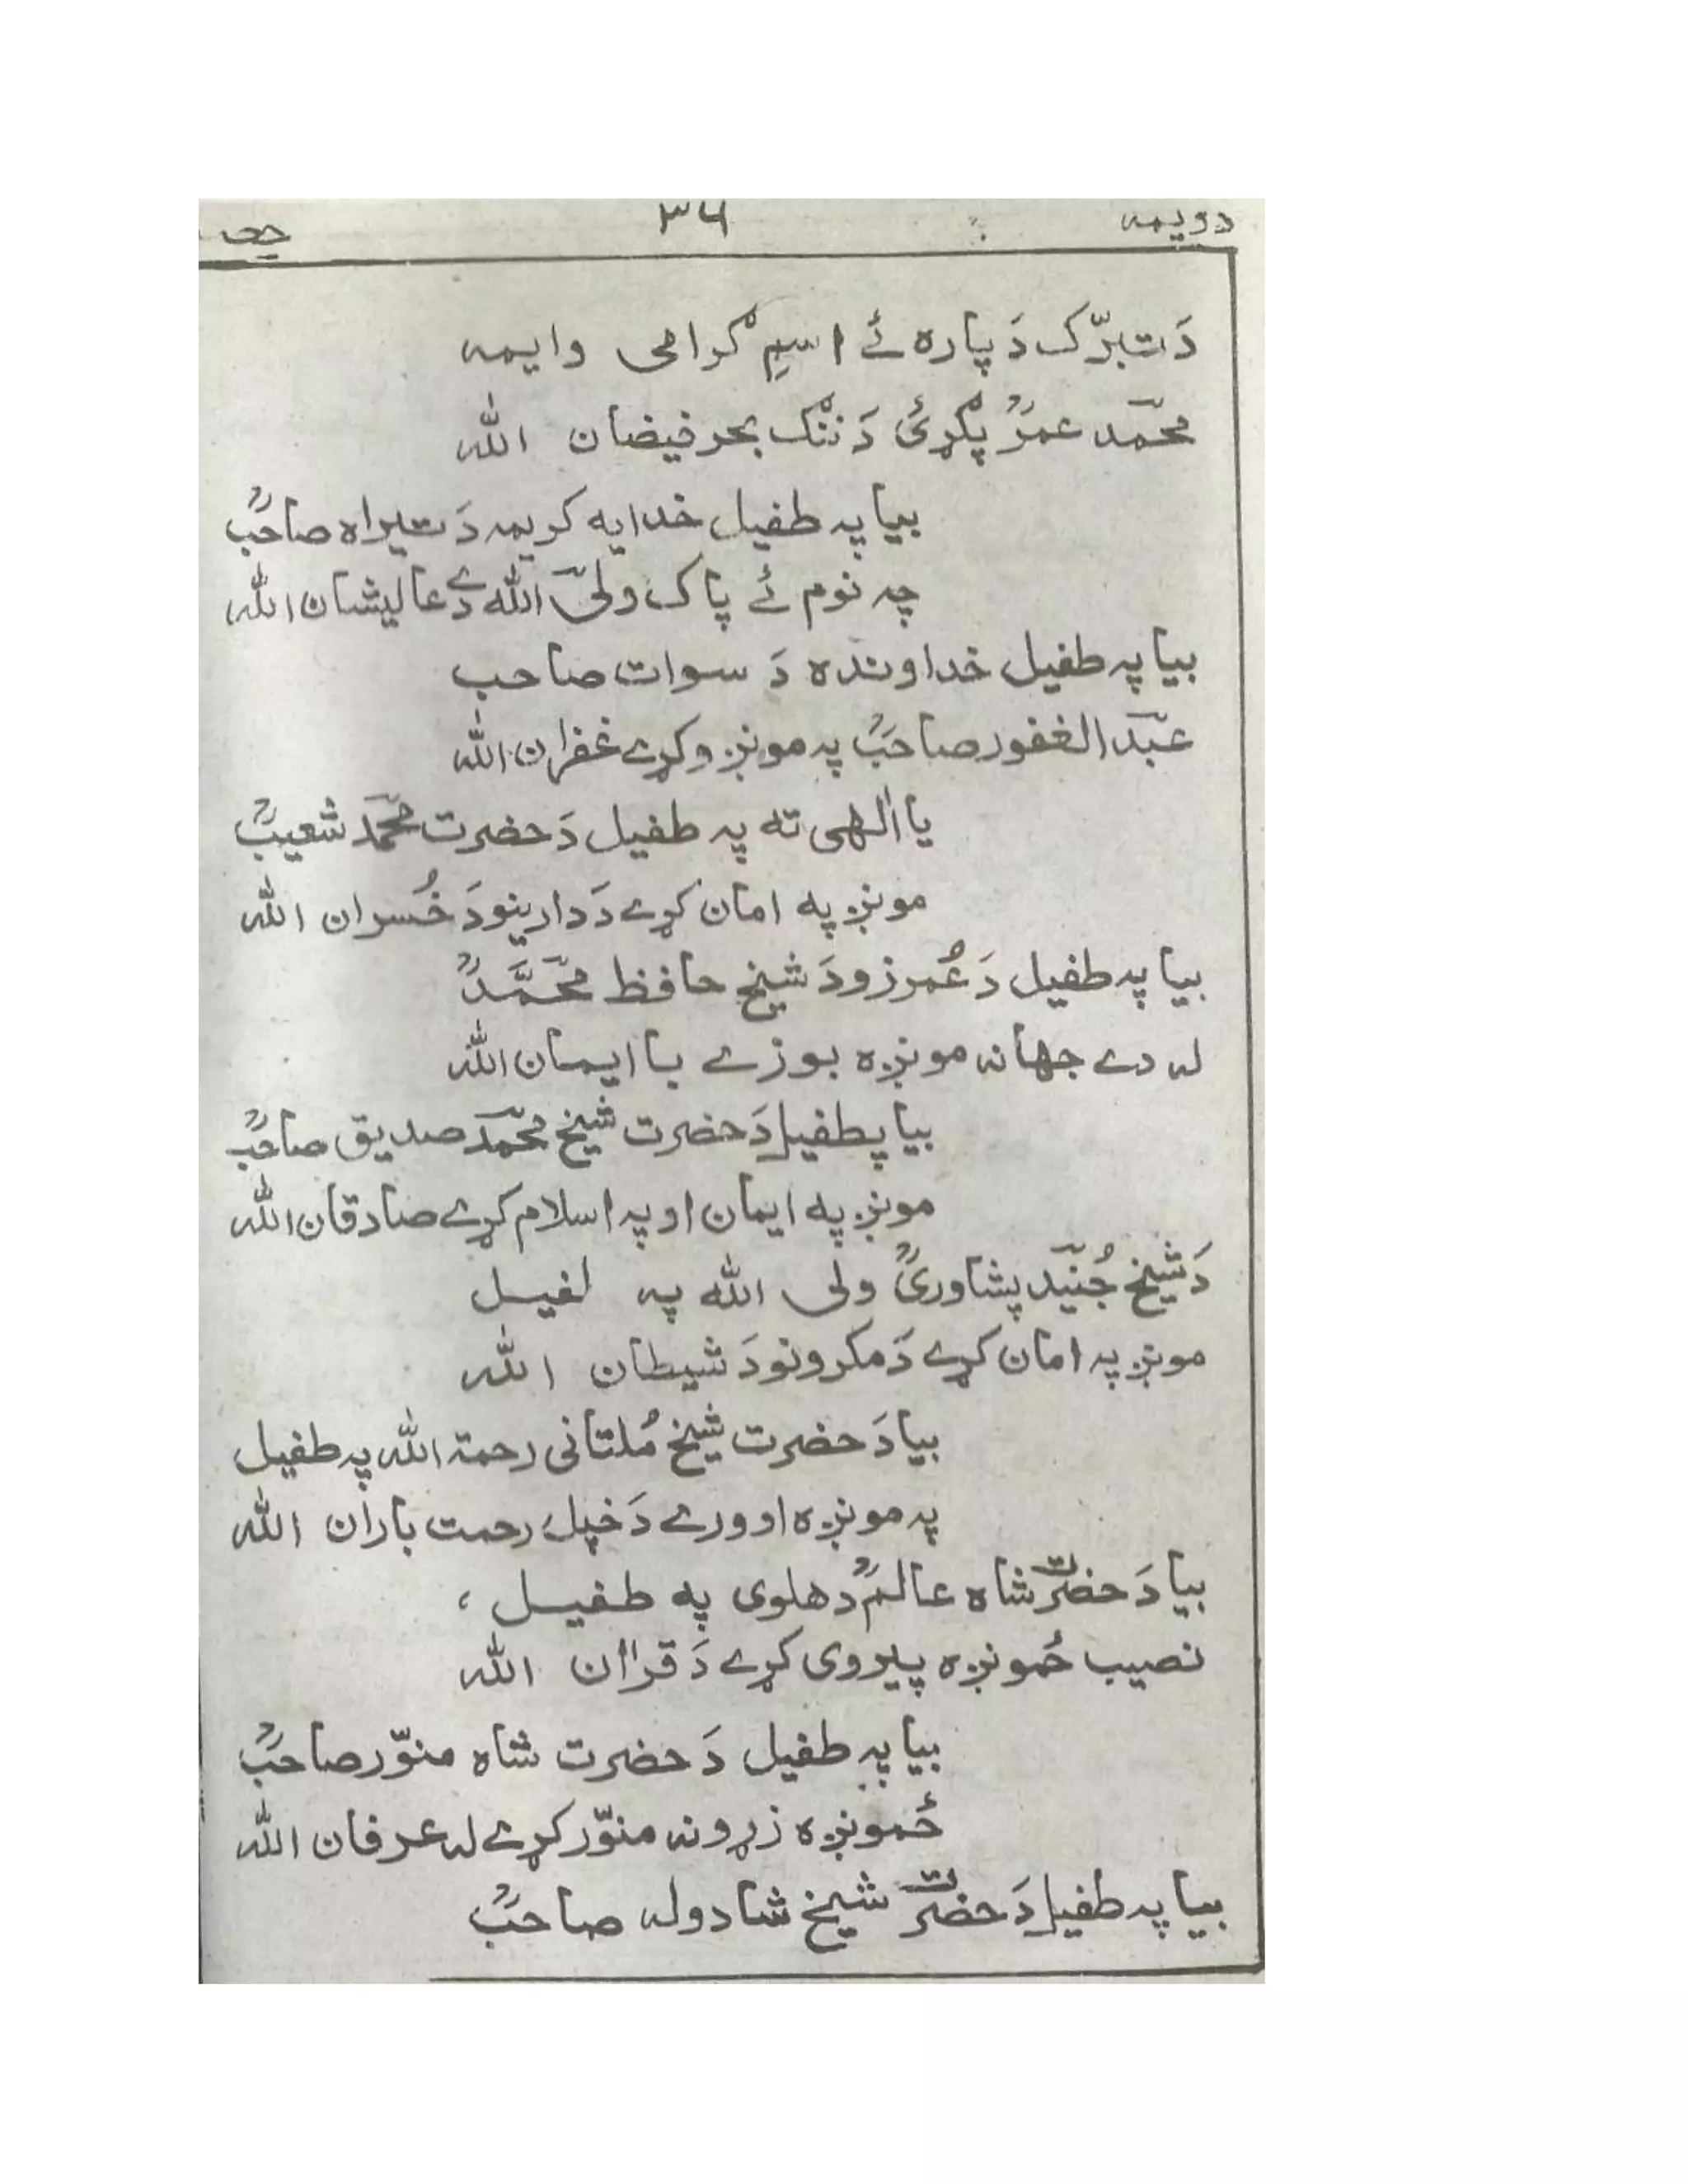 دویمه ۳۶
دَ تبرّک دَ پاره ئے اسمِ ګرامی وایمه
محمّد عمرؒ پګړئ دَ ننګ بحر فیضان الله
بیا په طفیل خدایه کریمه دَ تیراه صاحبؒ
چه نوم ئے پاک ولیّ الله دے عالیشان الله
بیا په طفیل خداونده دَ سوات صاحب
عبد الغفور صاحبؒ په مونږ وکړے غفران الله
یا الٰهی ته په طفیل دَ حضرت محمّد شعیبؒ
مونږ په امان کړے دَ دارینو دَ خُسران الله
بیا په طفیل دَ عُمرزو دَ شیخ حافظ محمَّدؒ
له دے جهانه مونږه بوزے با ایمان الله
بیا پطفیل دَ حضرت شیخ محمّد صدیق صاحبؒ
مونږ په ایمان او په اسلام کړے صادقان الله
دَ شیخ جُنید پشاوریؒ ولی الله په لفیل
مونږ په امان کړے دَ مکرونو دَ شیطان الله
بیا دَ حضرت شیخ مُلتانی رحمة الله په طفیل
په مونږه اوورے دَ خپل رحمت باران الله
بیا دَ حضرت شاه عالمؒ دهلوی په طفیل ،
نصیب ځمونږه پیروی کړے دَ قراان الله
بیا په طفیل دَ حضرت شاه منوّر صاحبؒ
ځمونږه زړونه منوّر کړے له عرفان الله
بیا په طفیل دَ حضرت شیخ شادوله صاحبؒ